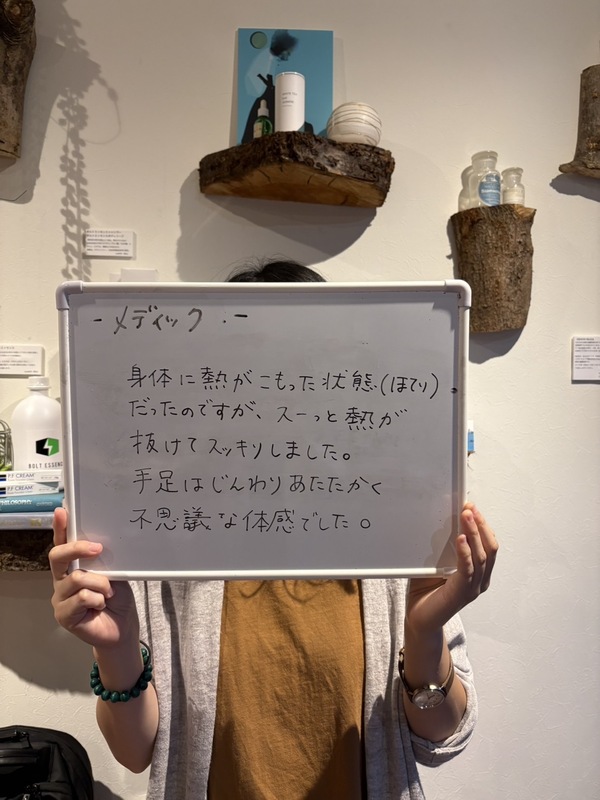 - メディック -
身体に熱がこもった状態(ほてり)
だったのですが、スーっと熱が
抜けてスッキリしました。
手足はじんわりあたたかく
不思議な体感でした。
BOLT ESSEN
P.F CREAM
P.F CREAM